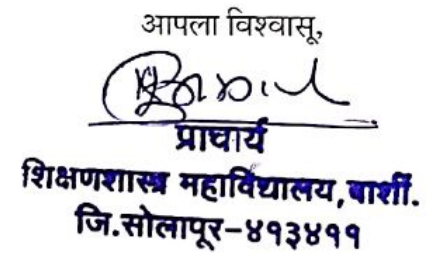 आपला विश्वासू,
प्राचार्य
शिक्षणशास्त्र महाविद्यालय, बार्शी.
जि.सोलापूर-४१३४११